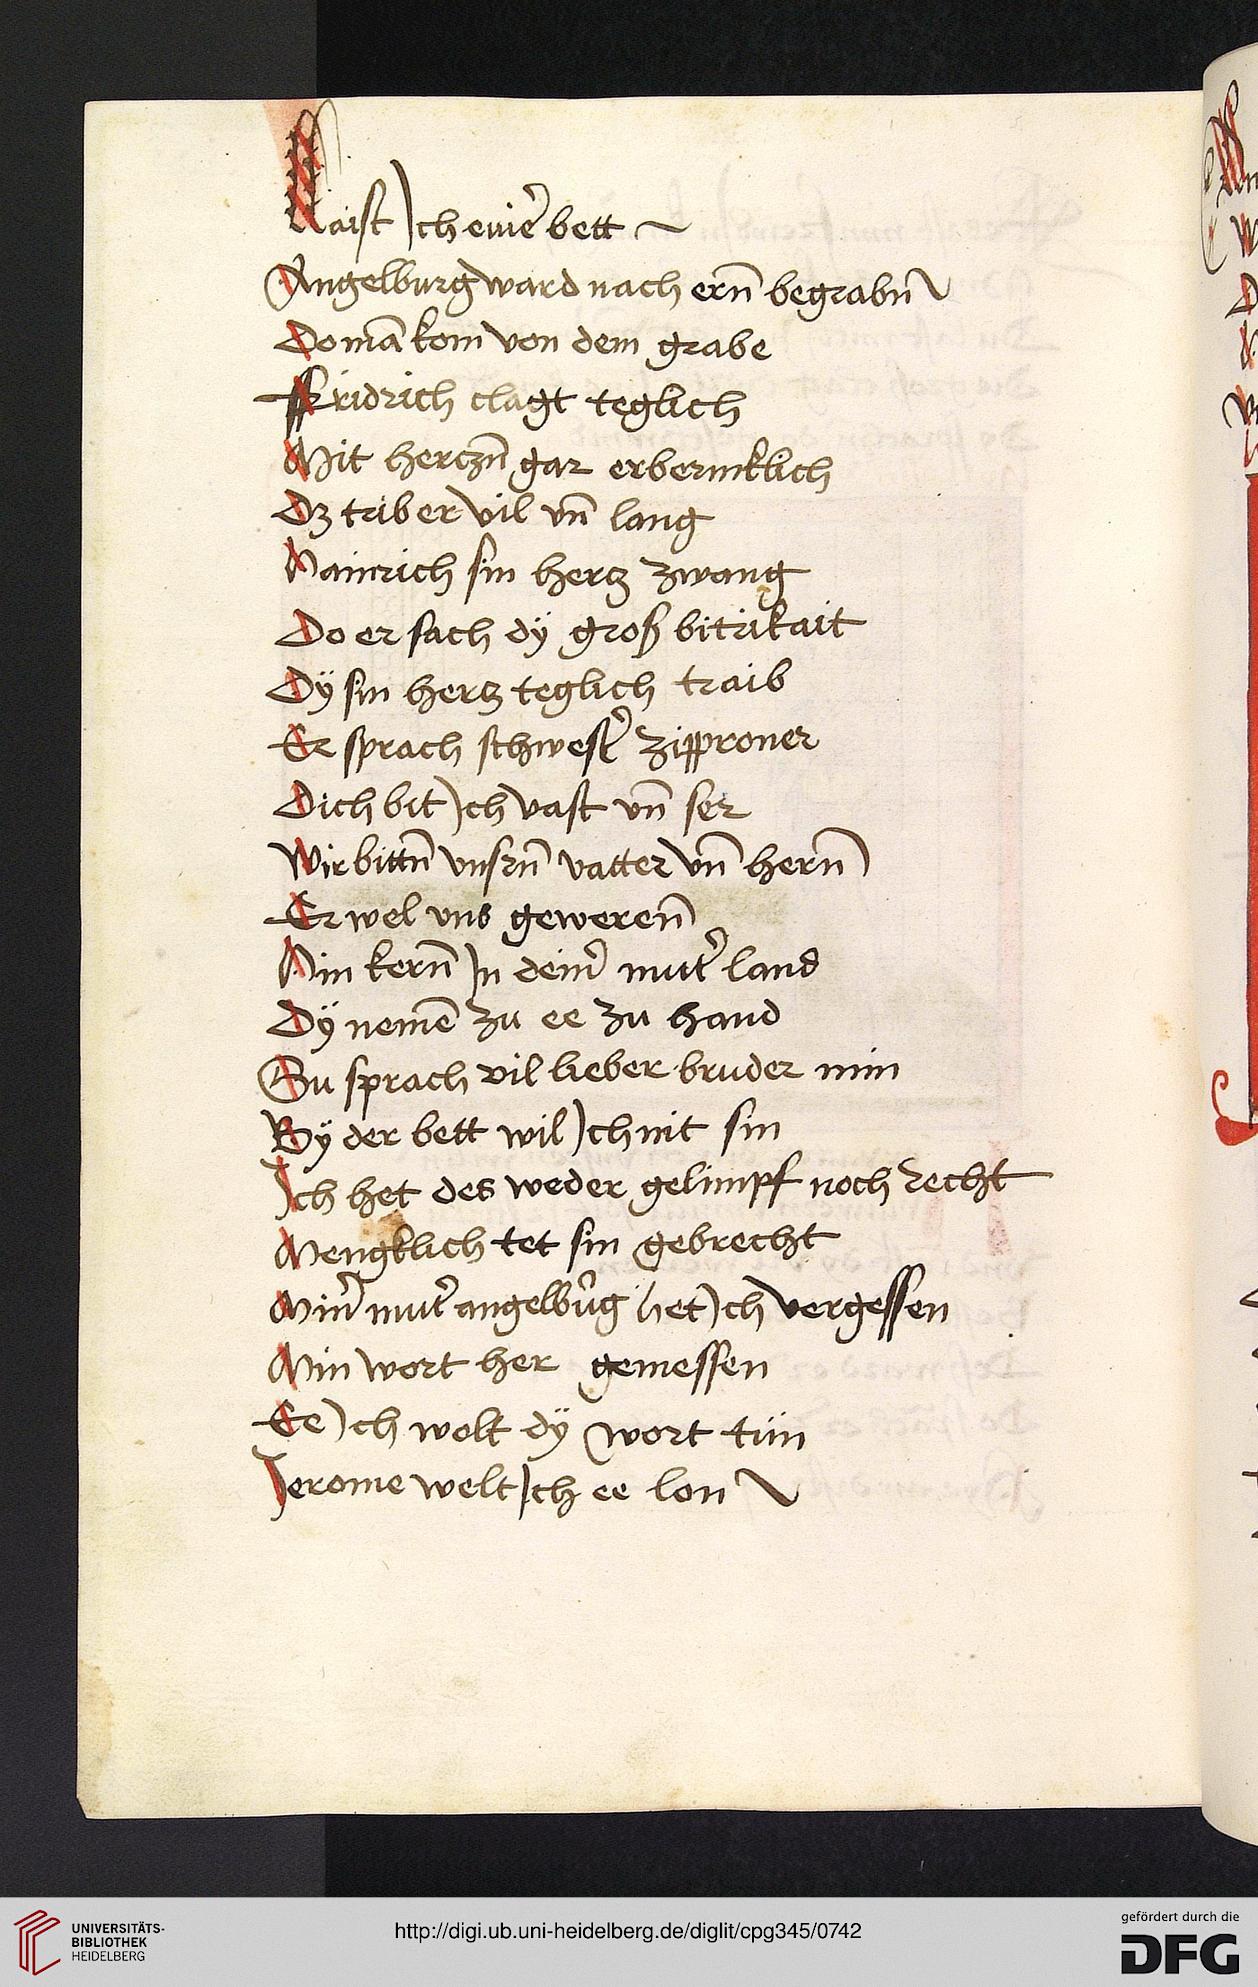 Laist Ich eiuer bett
Angelburg ward nach ern̄ begrabn̄
Do mā kom von dem grabe
Fridrich clagt teglich
Mit herczn̄ gar erbermklich
Dz traib er vil vn̄ lang
Hainrich sin hertz zwang
Do er sach dÿ groß bitrikait
Dÿ sin hertz teglich traib
Er sprach schwest̉ zipproner
Dich bit Ich vast vn̄ ser
Wir bittn̄ vnsrn̄ vatter vn̄ hern̄
Er wel vns gewerenn̄
Ain kern̄ In deim̉ mut̉ land
Dÿ nemē zu ee zu hand
Su sprach vil lieber bruder min
Bÿ der bett wil Ich nit sin
Ich het des weder gelimpf noch recht
Mengklich tet sin gebrecht
Min̉ mut̉ angelbu̇rg het Ich vergessen
Min wort her gemessen
Ee Ich wolt dÿ wort tün
Jerome welt Ich ee lon
UNIVERSITÄTS-
BIBLIOTHEK
HEIDELBERG
http://digi.ub.uni-heidelberg.de/diglit/cpg345/0742
gefördert durch die
DFG